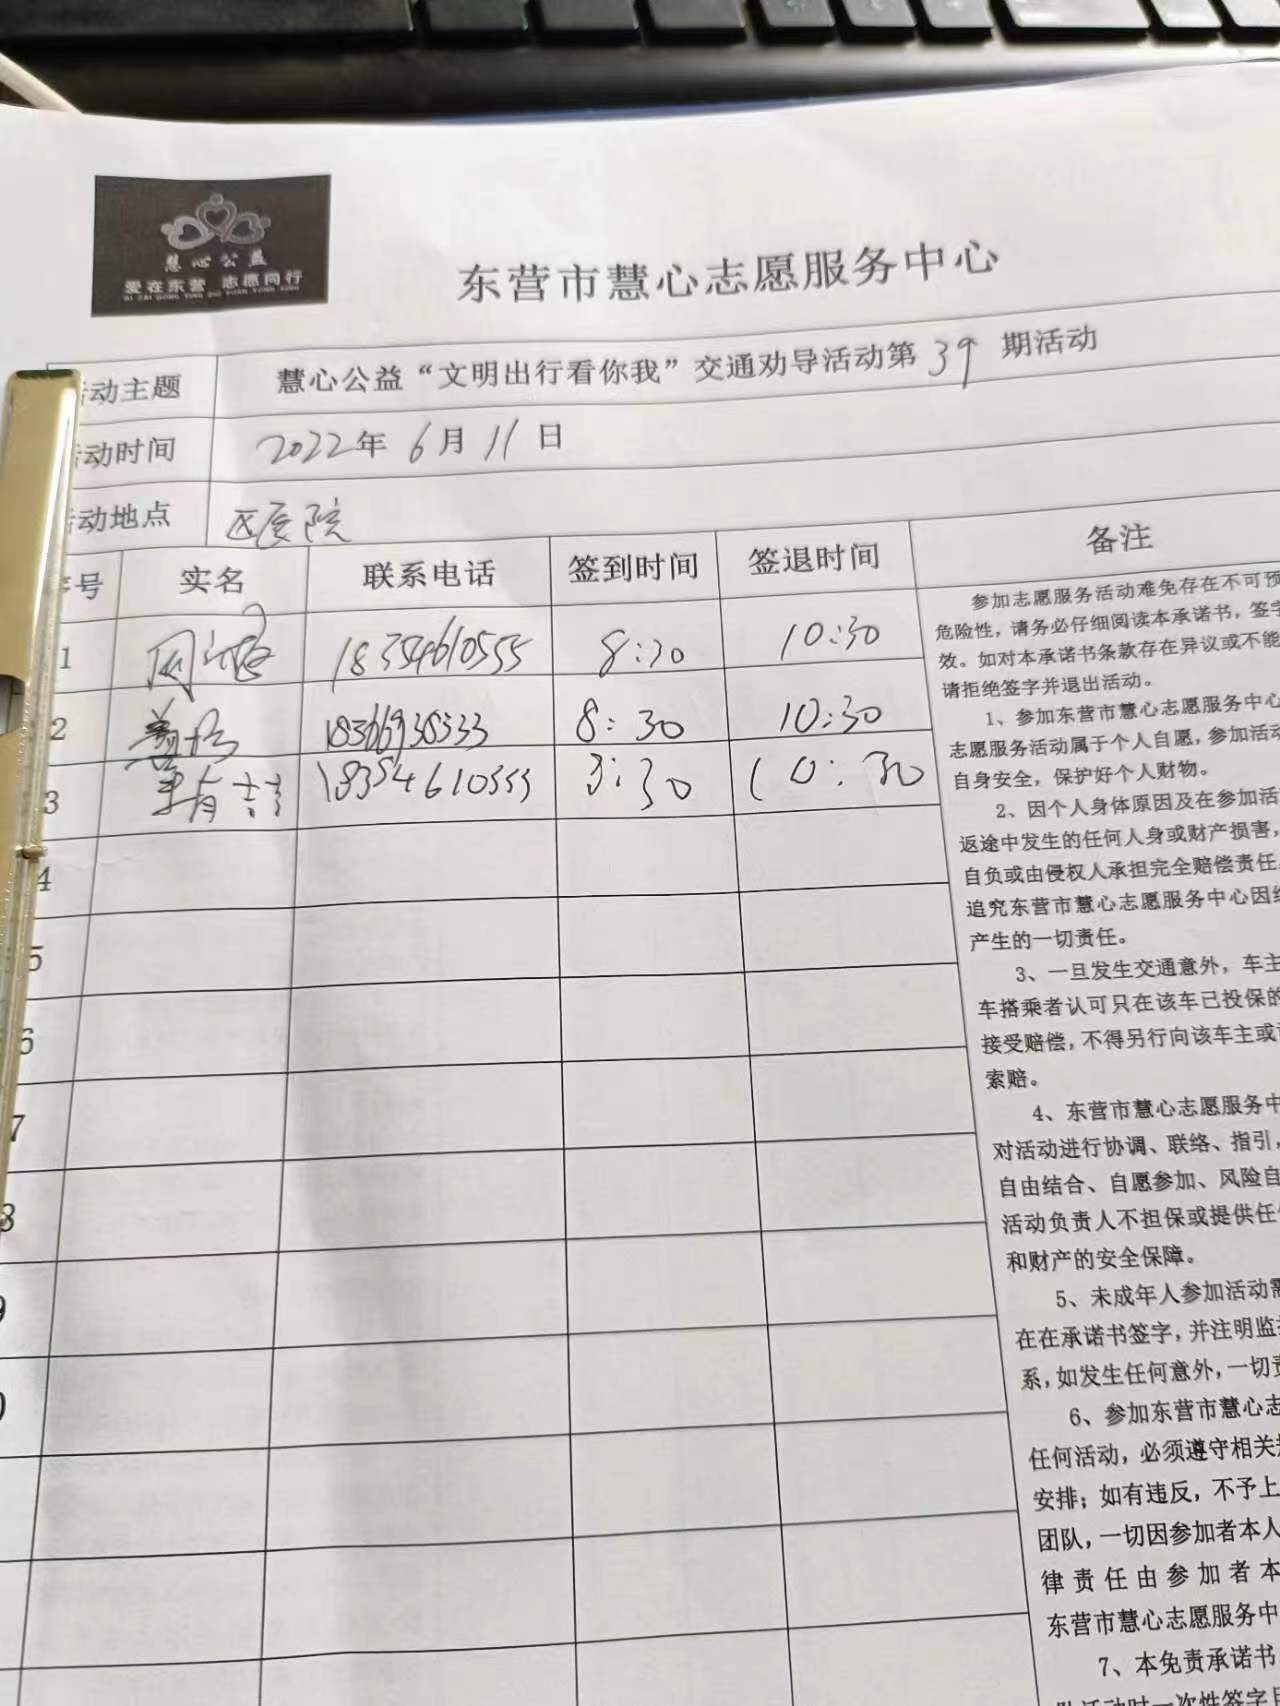 慧心公益
爱在东营 志愿同行
AI ZAI DONG YING ZHI YUAN TONG XING
东营市慧心志愿服务中心
活动主题 慧心公益“文明出行看你我”交通劝导活动第 39 期活动
活动时间 2022年 6月 11日
活动地点 区医院
序号 实名 联系电话 签到时间 签退时间 备注
1 18354610555 8:30 10:30
2 18366938333 8:30 10:30
3 18354610555 8:30 10:30
4
5
6
7
8
9
0
参加志愿服务活动难免存在不可预
危险性，请务必仔细阅读本承诺书，签字
效。如对本承诺书条款存在异议或不能
请拒绝签字并退出活动。
1、参加东营市慧心志愿服务中心
志愿服务活动属于个人自愿，参加活动
自身安全，保护好个人财物。
2、因个人身体原因及在参加活
返途中发生的任何人身或财产损害，
自负或由侵权人承担完全赔偿责任，
追究东营市慧心志愿服务中心因组
产生的一切责任。
3、一旦发生交通意外，车主
车搭乘者认可只在该车已投保的
接受赔偿，不得另行向该车主或
索赔。
4、东营市慧心志愿服务中
对活动进行协调、联络、指引，
自由结合、自愿参加、风险自
活动负责人不担保或提供任
和财产的安全保障。
5、未成年人参加活动需
在在承诺书签字，并注明监
系，如发生任何意外，一切责
6、参加东营市慧心志
任何活动，必须遵守相关
安排；如有违反，不予上
团队，一切因参加者本人
律责任由参加者本
东营市慧心志愿服务中
7、本免责承诺书
活动时一次性签字